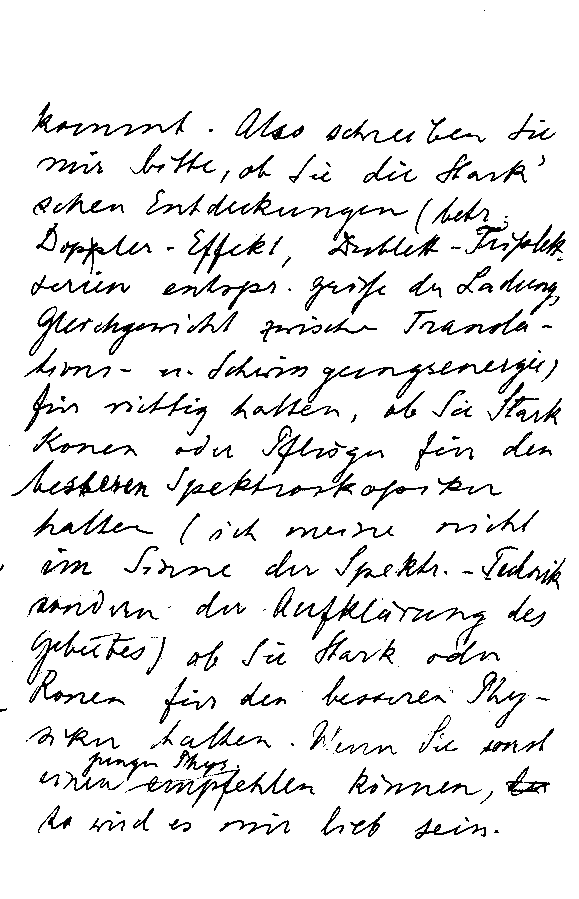 kommt. Also schreiben Sie
mir bitte, ob Sie die Stark'
schen Entdeckungen (betr.
Doppler-Effekt, Dublett-Triplett-
serien entspr. große der Ladung,
Gleichgewicht zwischen Transla-
tions- u. Schwingungsenergie)
für richtig halten, ob Sie Stark
Konen oder Pflüger für den
besseren Spektroskopiker
halten (ich meine nicht
im Sinne der Spektr.-Technik
sondern der Aufklärung des
Gebietes) ob Sie Stark oder
Konen für den besseren Phy-
siker halten. Wenn Sie sonst
einen jungen Phys. empfehlen können,
so wird es mir lieb sein.